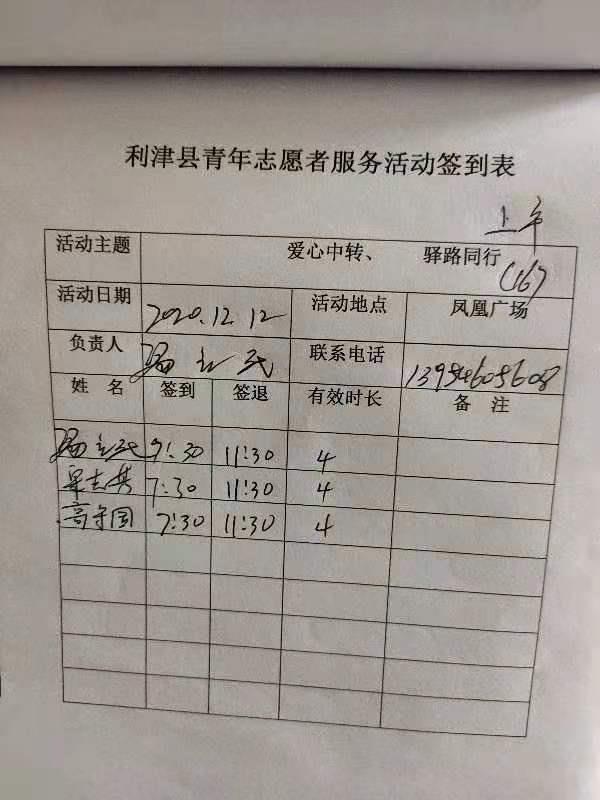 利津县青年志愿者服务活动签到表
上午
活动主题 爱心中转、 驿路同行
(16)
活动日期 2020.12.12 活动地点 凤凰广场
负责人 联系电话 13954605608
姓名 签到 签退 有效时长 备注
7:30 11:30 4
7:30 11:30 4
高守国 7:30 11:30 4